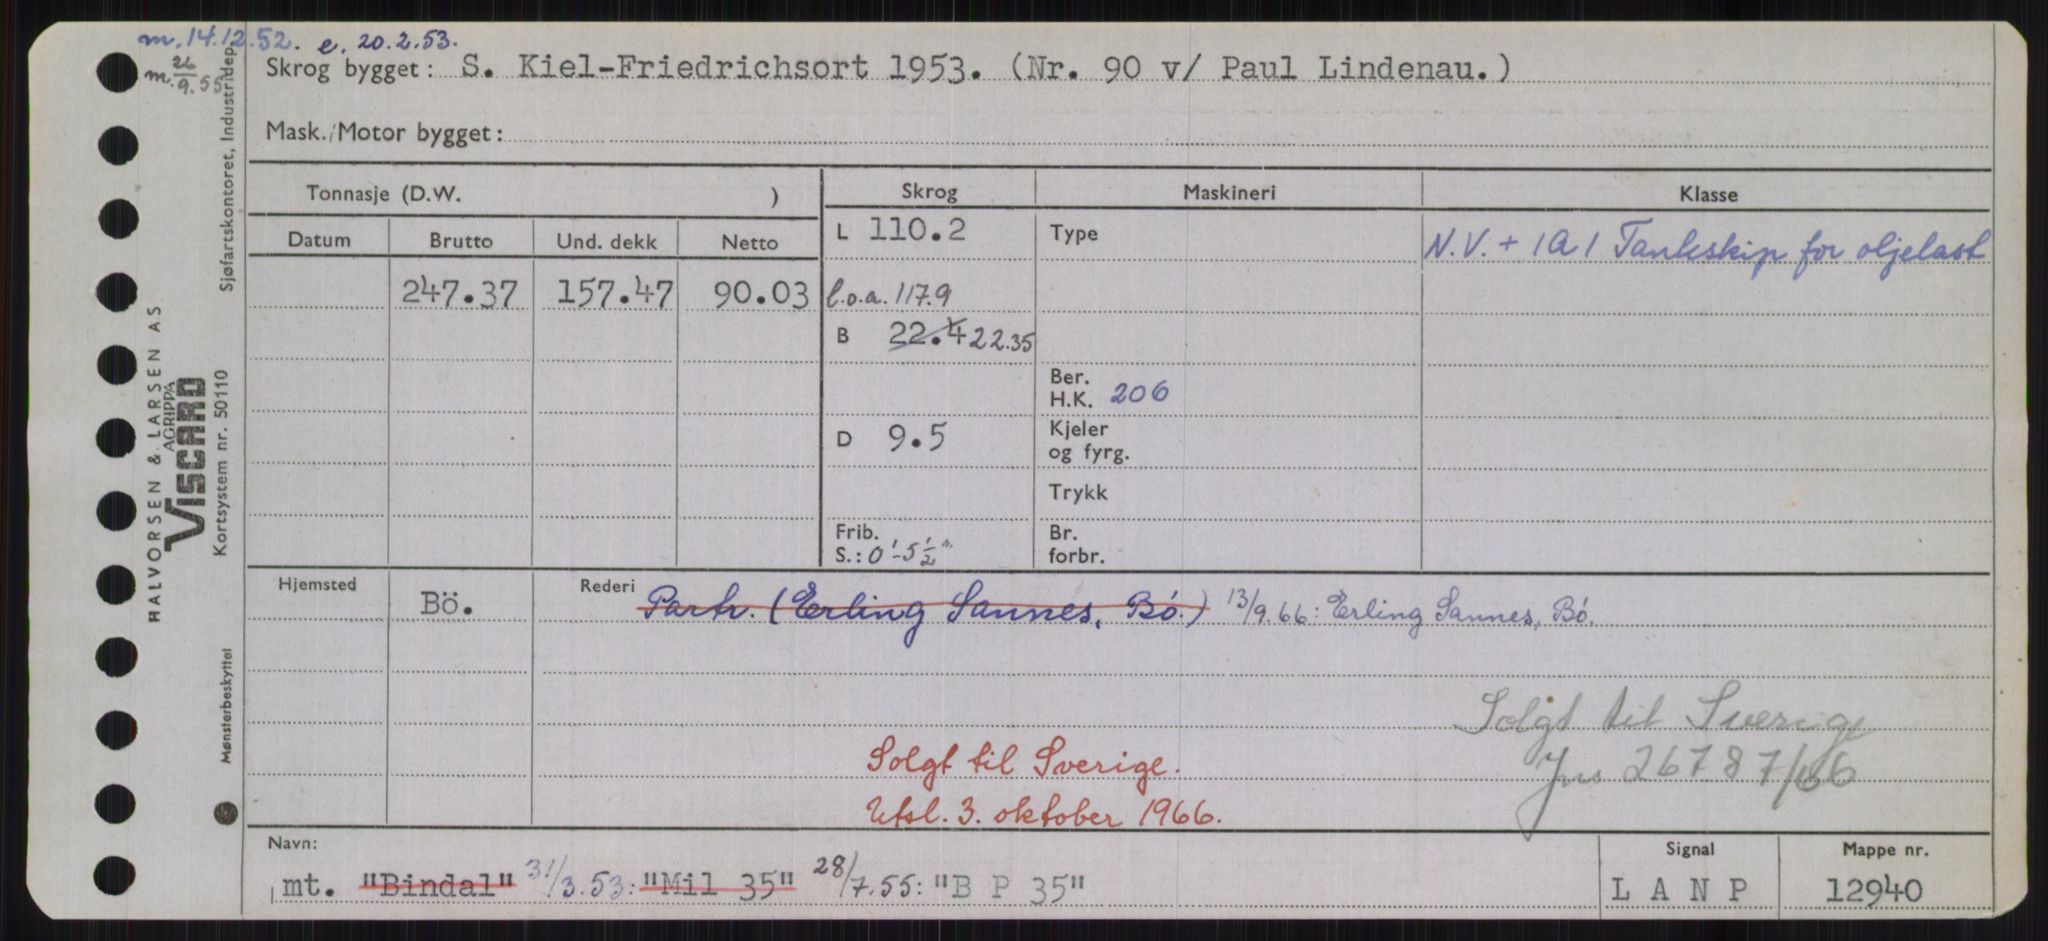 m. 14.12.52. e. 20.2.53.
m. 26/9.55
Skrog bygget: S. Kiel-Friedrichsort 1953. (Nr. 90 v/ Paul Lindenau.)
Mask./Motor bygget:
Tonnasje (D.W. )
Skrog
Maskineri
Klasse
Datum
Brutto
Und. dekk
Netto
L 110.2
Type
N.V. + 1A1 Tankskip for oljelast
247.37
157.47
90.03
l.o.a. 117.9
B 22.4 22.35
Ber.
H.K. 206
D 9.5
Kjeler
og fyrg.
Trykk
Frib.
S.: 0'-5 1/2"
Br.
forbr.
Hjemsted
Bö.
Rederi
Partr. (Erling Sannes, Bö.) 13/9.66: Erling Sannes, Bö.
Solgt til Sverige
Jns 26787/66
Solgt til Sverige.
Utsl. 3. oktober 1966.
Navn:
mt. "Bindal" 31/3.53: "Mil 35" 28/7.55: "B P 35"
Signal
L A N P
Mappe nr.
12940
Sjøfartskontoret, Industridep
HALVORSEN & LARSEN AS
AGRIPPA
VISCARD
Kortsystem nr. 50110
Mønsterbeskyttet